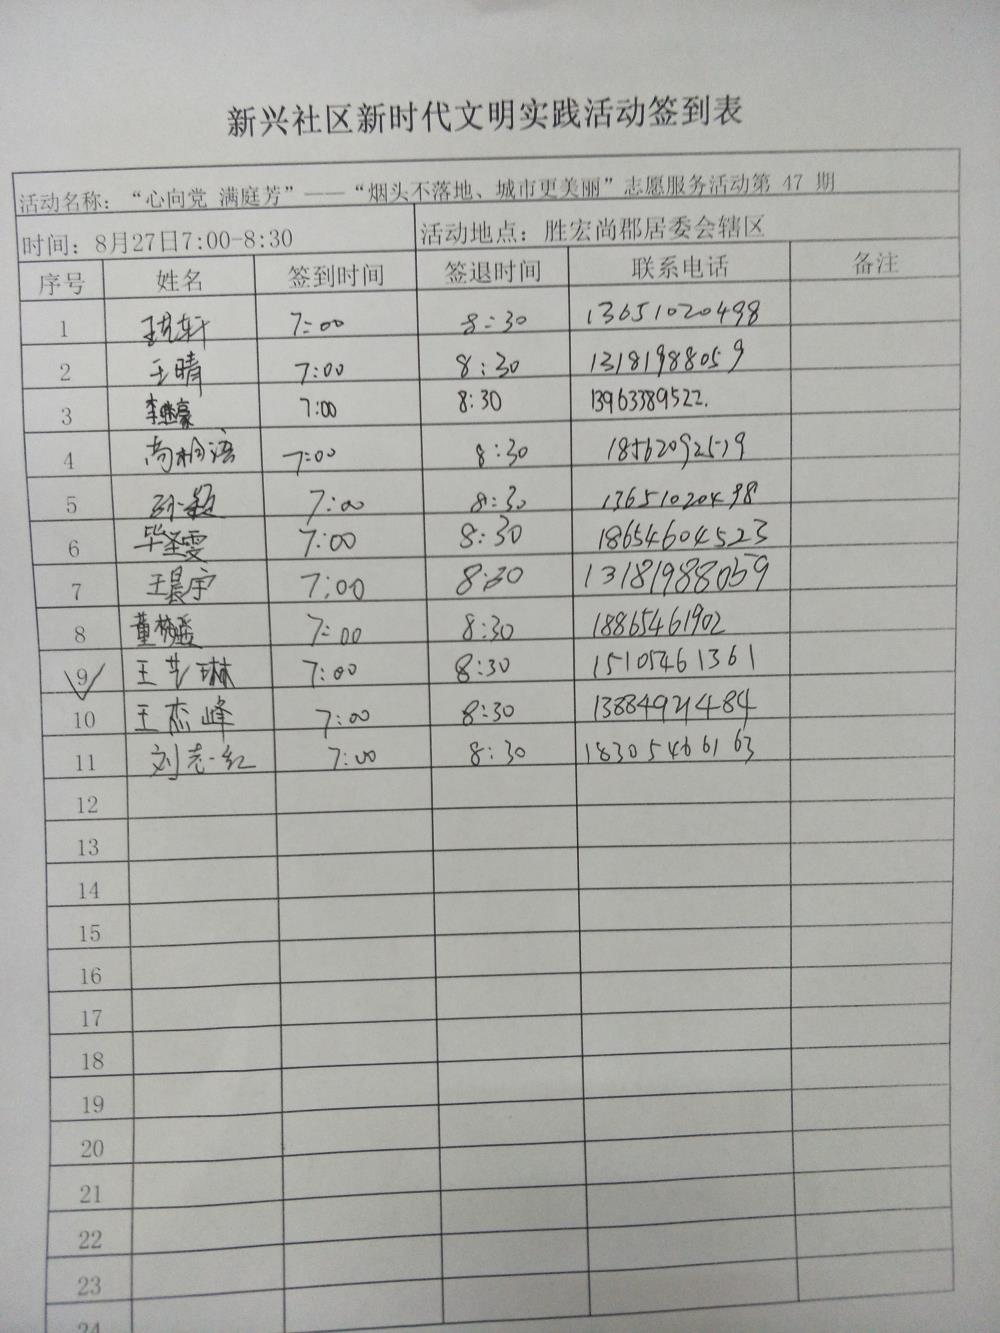 新兴社区新时代文明实践活动签到表
活动名称：“心向党 满庭芳”——“烟头不落地、城市更美丽”志愿服务活动第 47 期
时间：8月27日7:00-8:30 活动地点：胜宏尚郡居委会辖区
序号 姓名 签到时间 签退时间 联系电话 备注
1 7:00 8:30 13651020498
2 王晴 7:00 8:30 13181988059
3 李继豪 7:00 8:30 13963389522.
4 尚桐语 7:00 8:30
5 7:00 8:30 13651020498
6 毕圣雯 7:00 8:30 18654604523
7 王晨宇 7:00 8:30 13181988059
8 7:00 8:30 18865461902
9 王艺琳 7:00 8:30 15105461361
10 王杰峰 7:00 8:30 13884921484
11 刘志红 7:00 8:30 18305466163
12
13
14
15
16
17
18
19
20
21
22
23
24